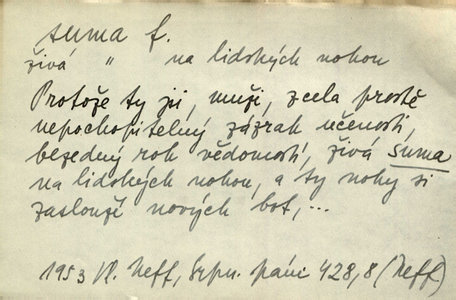 suma f.
živá " na lidských nohou
Protože ty jsi, muži, zcela prostě
nepochopitelný zázrak učenosti,
bezedný rok vědomostí, živá suma
na lidských nohou, a ty nohy si
zaslouží nových bot,...
1953 Vl. Neff, Srpn. páni 428,8 (Neff)